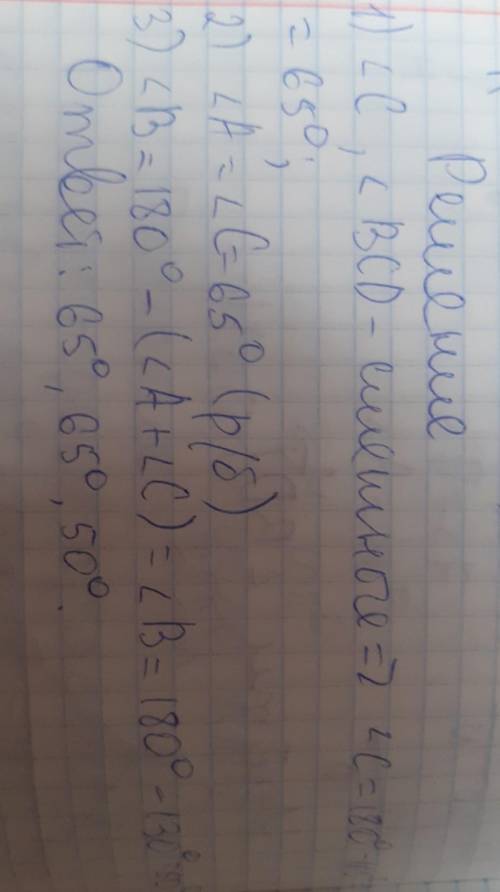 Решение
1) ∠C, ∠BCD - смежные => ∠C = 180°
= 65°;
2) ∠A = ∠C = 65° (р/б)
3) ∠B = 180° - (∠A + ∠C) = ∠B = 180° - 130°
Ответ: 65°, 65°, 50°.